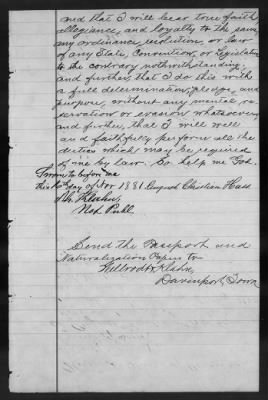 and that I will bear true faith,
allegiance, and loyalty to the same,
any ordinance, resolution, or law
of any State, Convention, or Legislature
to the contrary notwithstanding.
and further, that I do this with
a full determination, pledge, and
purpose, without any mental re-
servation or evasion whatsoever;
and further, that I will well
and faithfully perform all the
duties which may be required
of me by law. So help me God.
Sworn to before me
this day of Nov 1881 August Christian Hass
Not Publ
Send the Passport and
Naturalization Papers to
Davenport, Iowa